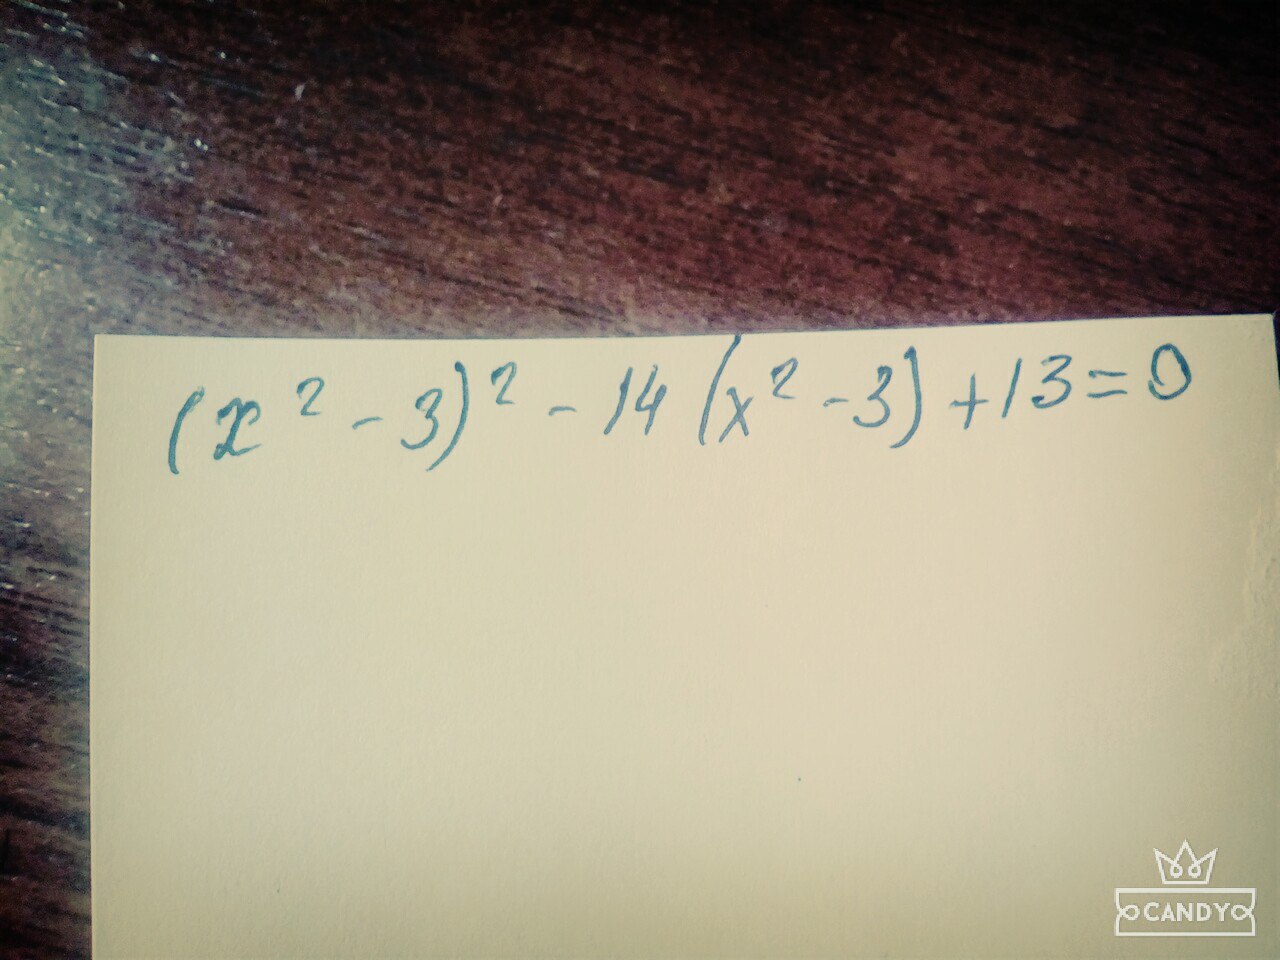 (x² - 3)² - 14 (x² - 3) + 13 = 0
CANDY